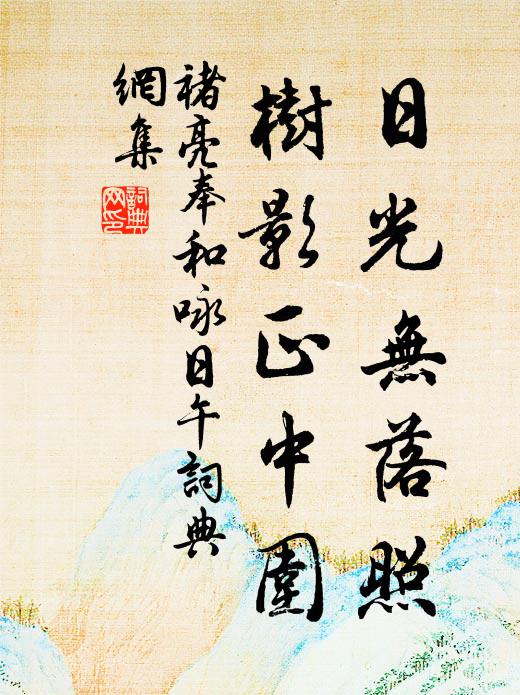 日光無落照
樹影正中圍
褚亮奉和咏日午詞典
網集
詞典
网印